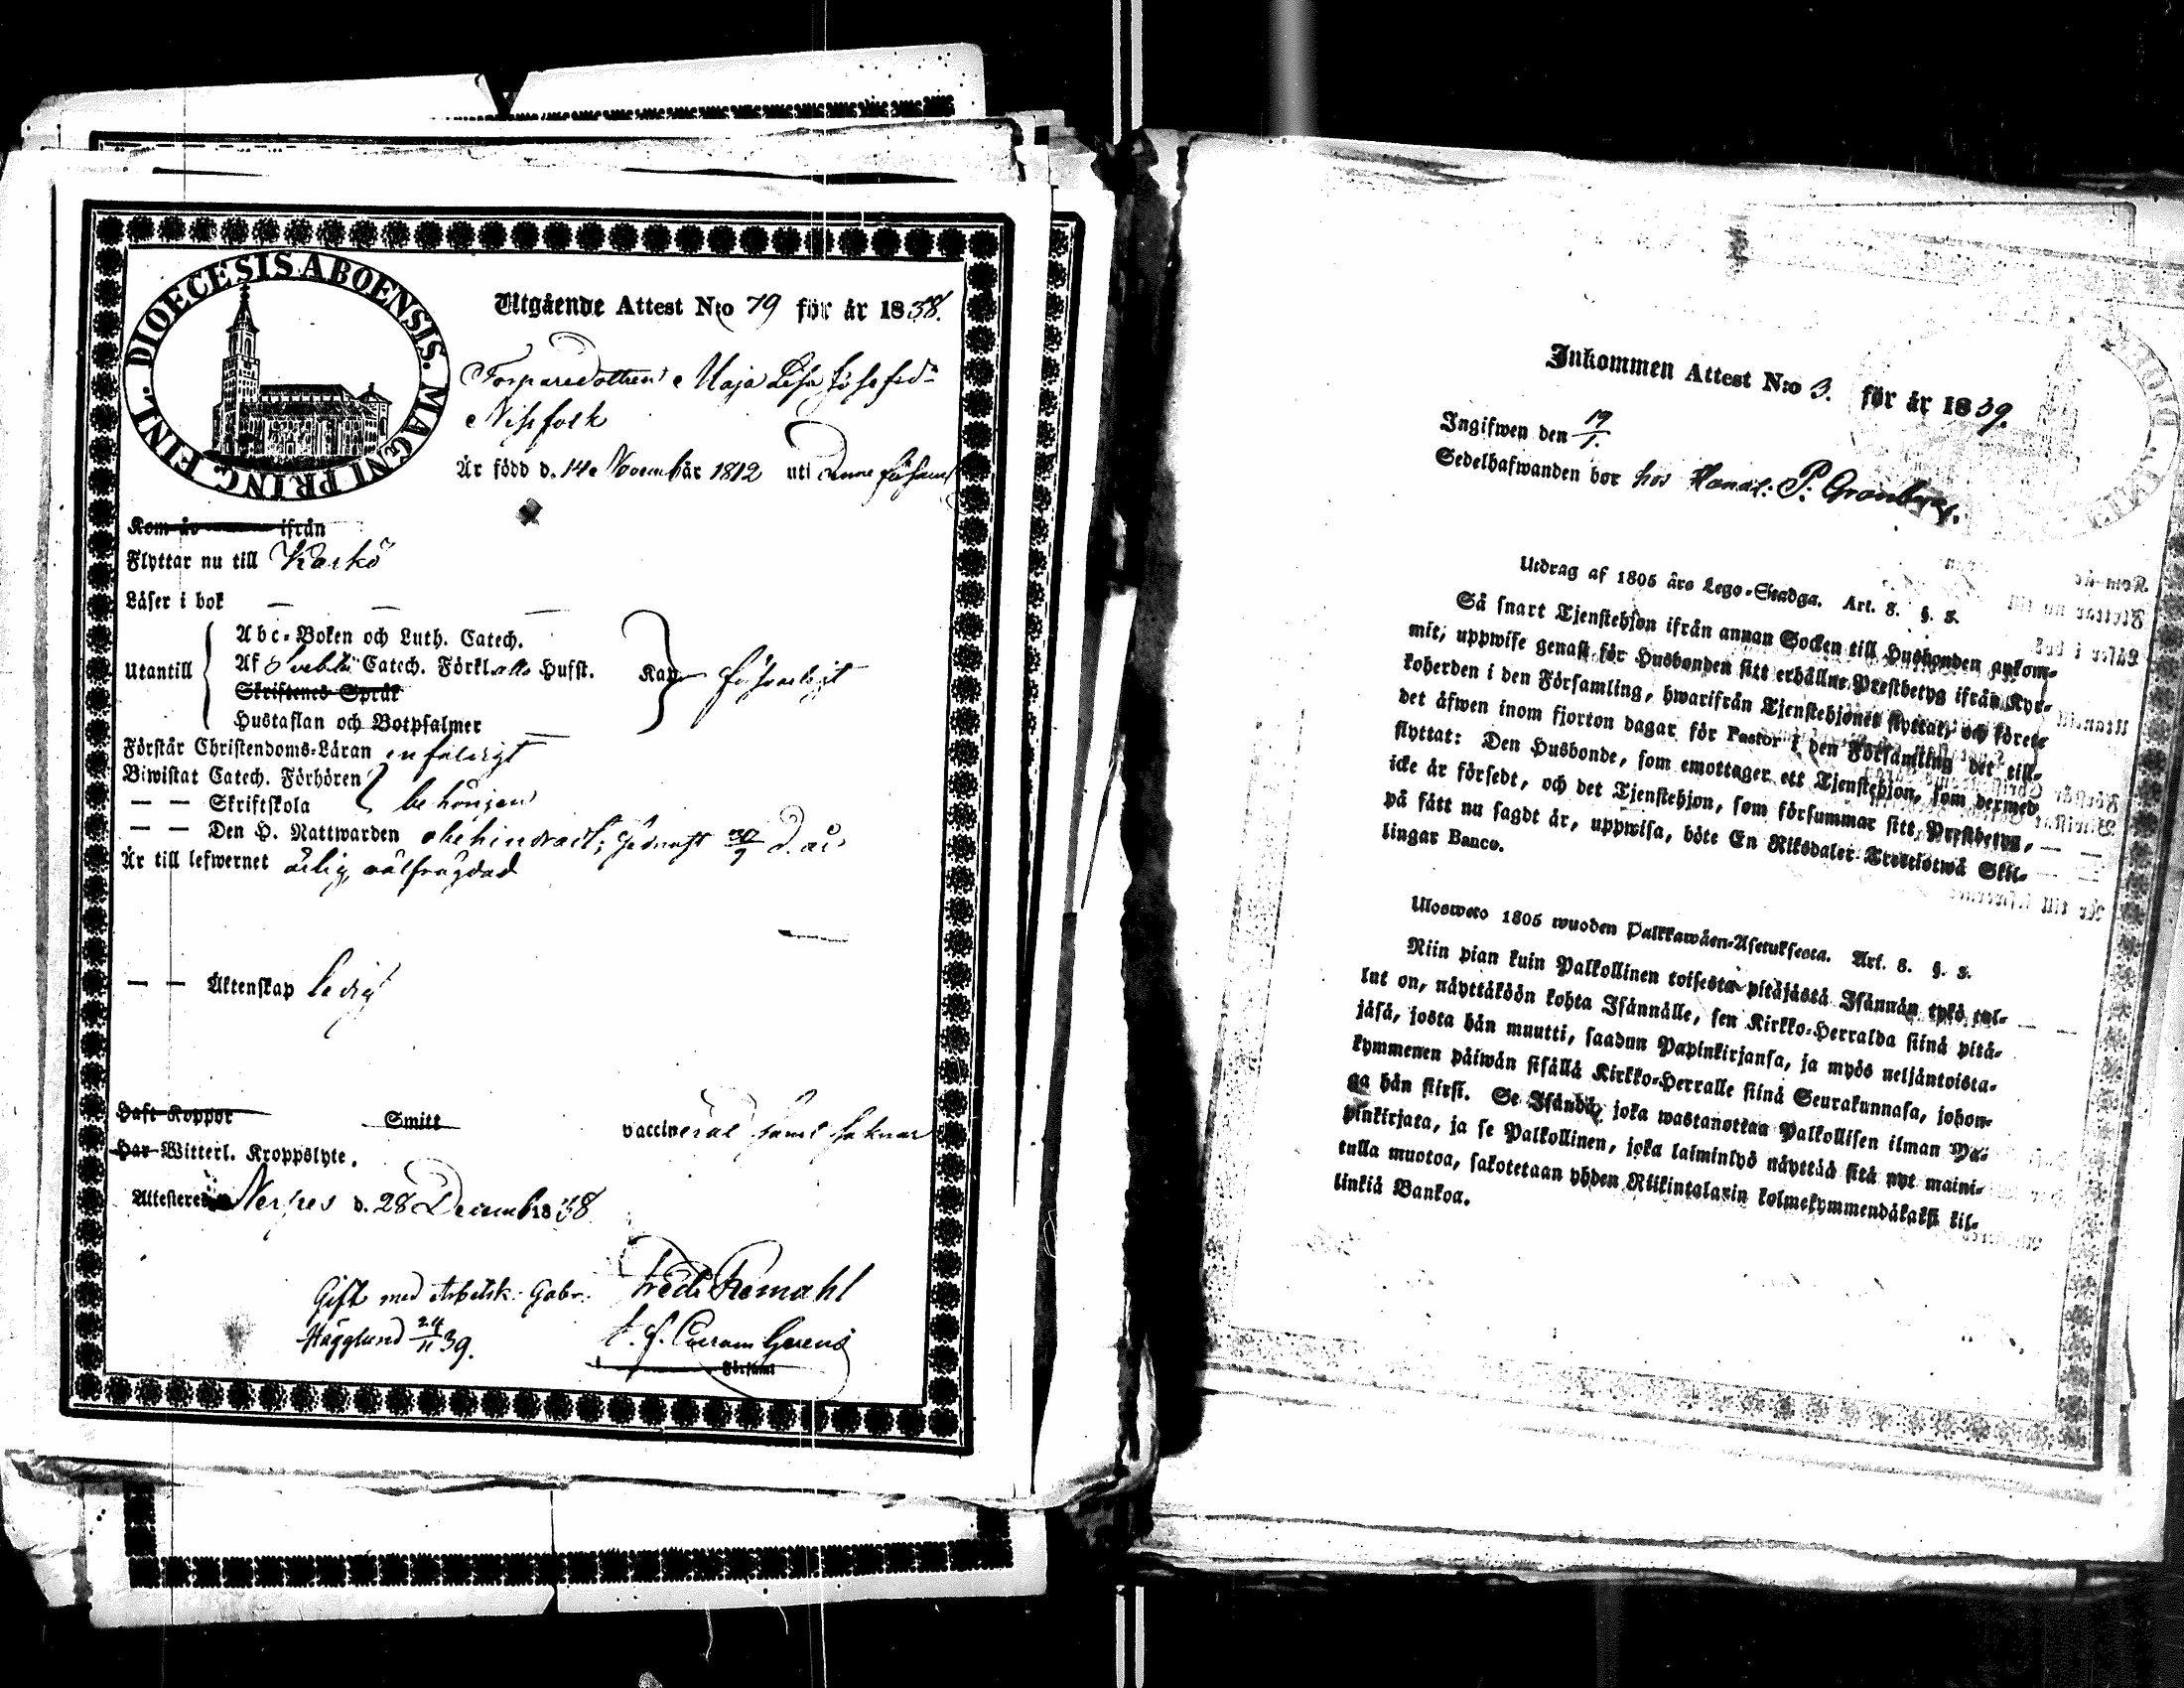 DIOECESIS ABOENSIS. MAGNI PRINC. FINL.
Utgående Attest N:o 79 för år 1838.
Torparedottren Maja Lisa Josefsdr
Nissfolk
Är född d. 14 Novembär 1812 uti denne församl
Kom år ifrån
Flyttar nu till Kaskö
Läser i bok — — —
Utantill
Abc-Boken och Luth. Catech.
Af Svebilii Catech. Förkl. alla Hufst.
Skriftenes Språk
Hustaflan och Botpsalmer
Kan försvarligt
Förstår Christendoms-Läran enfaldigt
Biwistat Catech. Förhören
— — Skriftskola
behörigen
— — Den H. Nattwarden obehindradt; sednast 30/9 d. år
Är till lefwernet ärlig, välfrägdad
— — Äktenskap ledig
Haft Koppor Smitt vaccinerad samt saknar
Har Witterl. Kroppslyte.
Attesterer Nerpes d. 28 Decemb 1838
Gift med Arbetsk. Gabr.
Hägglund 24/11 39.
Fredr Remahl
t. f. Curam Gerens
Församl
Inkommen Attest N:o 3. för år 1839.
Ingifwen den 19/1.
Sedelhafwanden bor hos Handl: P: Grönberg.
Utdrag af 1805 års Lego-Stadga. Art. 8. §. 3.
Så snart Tjenstehjon ifrån annan Socken till Husbonden ankom-
mit, uppwise genast för Husbonden sitt erhållne Prestbetyg ifrån Kyr-
koherden i den Församling, hwarifrån Tjenstehjonet flyttat, och förete
det äfwen inom fjorton dagar för Pastor i den Församling det till-
flyttat: Den Husbonde, som emottager ett Tjenstehjon, som dermed
icke är försedt, och det Tjenstehjon, som försummar sitt Prestbetyg,
på sätt nu sagdt är, uppwisa, böte En Riksdaler Trettiotwå Skil-
lingar Banco.
Uloswero 1805 wuoden Palkkawäen-Asetuksesta. Art. 8. §. 3.
Niin pian kuin Palkollinen toisesta pitäjästä Isännän tykö tul-
lut on, näyttäköön kohta Isännälle, sen Kirkko-Herralda siinä pitä-
jäsä, josta hän muutti, saadun Papinkirjansa, ja myös neljäntoista-
kymmenen päiwän sisällä Kirkko-Herralle siinä Seurakunnasa, johon-
ga hän siirsi. Se Isändä, joka wastanottaa Palkollisen ilman Pa-
pinkirjata, ja se Palkollinen, joka laiminlyö näyttää sitä nyt maini-
tulla muotoa, sakotetaan yhden Riikintalarin kolmekymmendäkaksi kil-
linkiä Bankoa.